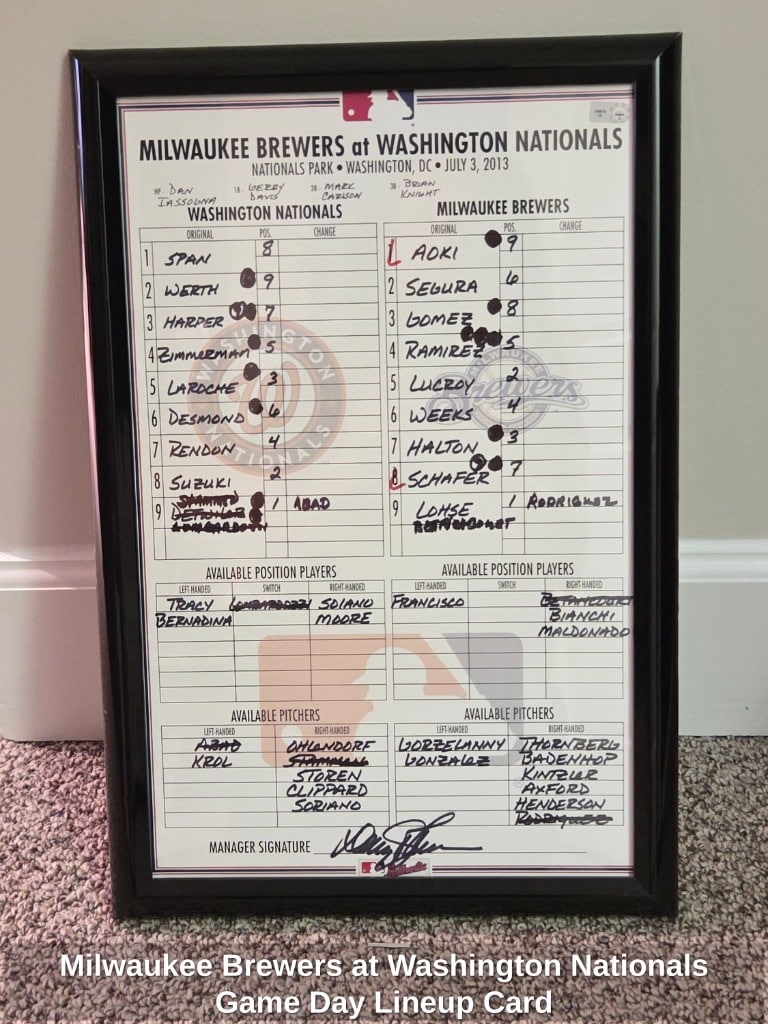 MILWAUKEE BREWERS at WASHINGTON NATIONALS
NATIONALS PARK • WASHINGTON, DC • JULY 3, 2013
HP- DAN IASSOGNA 1B- GERRY DAVIS 2B- MARK CARLSON 3B- BRIAN KNIGHT
WASHINGTON NATIONALS
ORIGINAL POS. CHANGE
1 SPAN 8
2 WERTH 9
3 HARPER 7
4 ZIMMERMAN 5
5 LAROCHE 3
6 DESMOND 6
7 RENDON 4
8 SUZUKI 2
STAMMEN
9 DETWILER 1 ABAD
LOMBARDOZZI
MILWAUKEE BREWERS
ORIGINAL POS. CHANGE
1 L AOKI 9
2 SEGURA 6
3 GOMEZ 8
4 RAMIREZ 5
5 LUCROY 2
6 WEEKS 4
7 HALTON 3
8 L SCHAFER 7
9 LOHSE 1 RODRIGUEZ
WASHINGTON
W
NATIONALS
MILWAUKEE
Brewers
AVAILABLE POSITION PLAYERS
LEFT-HANDED SWITCH RIGHT-HANDED
TRACY LOMBARDOZZI SOLANO
BERNADINA MOORE
AVAILABLE POSITION PLAYERS
LEFT-HANDED SWITCH RIGHT-HANDED
FRANCISCO BETANCOURT
BIANCHI
MALDONADO
AVAILABLE PITCHERS
LEFT-HANDED RIGHT-HANDED
ABAD OHLENDORF
KROL STAMMEN
STOREN
CLIPPARD
SORIANO
AVAILABLE PITCHERS
LEFT-HANDED RIGHT-HANDED
GORZELANNY THORNBERG
GONZALEZ BADENHOP
KINTZLER
AXFORD
HENDERSON
RODRIGUEZ
MANAGER SIGNATURE
Milwaukee Brewers at Washington Nationals
Game Day Lineup Card